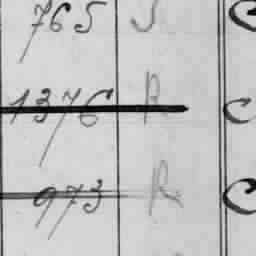 765 S C
1376 R C
973 R C